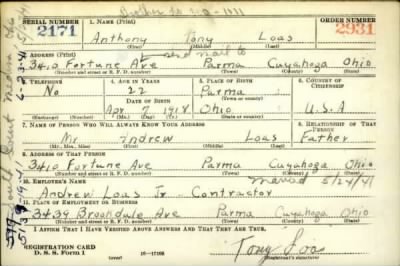 SERIAL NUMBER 1. NAME (Print) ORDER NUMBER
2171 Anthony Tony Loas 2931
(First) (Middle) (Last)
2. ADDRESS (Print) send mail to
3410 Fortune Ave Parma Cuyahoga Ohio
(Number and street or R. F. D. number) (Town) (County) (State)
3. TELEPHONE 4. AGE IN YEARS 5. PLACE OF BIRTH 6. COUNTRY OF CITIZENSHIP
No 22 Parma
DATE OF BIRTH (Town or county)
Apr 7 1918 Ohio U.S.A
(Mo.) (Day) (Yr.) (State or country)
7. NAME OF PERSON WHO WILL ALWAYS KNOW YOUR ADDRESS 8. RELATIONSHIP OF THAT PERSON
Mr Andrew Loas Father
(Mr., Mrs., Miss) (First) (Middle) (Last)
9. ADDRESS OF THAT PERSON
3410 Fortune Ave Parma Cuyahoga Ohio
(Number and street or R. F. D. number) (Town) (County) (State)
10. EMPLOYER'S NAME 5/24/41
Andrew Loas Jr - Contractor
11. PLACE OF EMPLOYMENT OR BUSINESS
3439 Brookdale Ave Parma Cuyahoga Ohio
(Number and street or R. F. D. number) (Town) (County) (State)
I AFFIRM THAT I HAVE VERIFIED ABOVE ANSWERS AND THAT THEY ARE TRUE.
REGISTRATION CARD
D. S. S. FORM 1 (over) 16-17105 Tony Loas
(Registrant's signature)